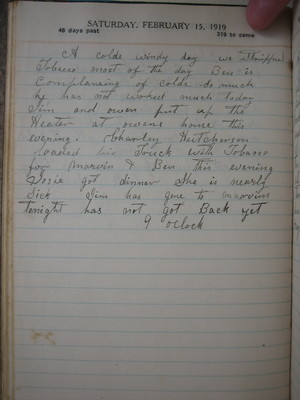 SATURDAY, FEBRUARY 15, 1919
46 days past 319 to come
A colde windy day we Stripped
Tobacco most of the day Ben is
Complaning of colde so much
he has not worked much today
Jim and owen put up the
Heater at owens house this
evening. Charley Hutcherson
loaded his Truck with Tobacco
for Marvin & Ben this evening
Josie got dinner She is nearly
Sick Jim has gone to marvins
tonight has not got Back yet
9 oclock